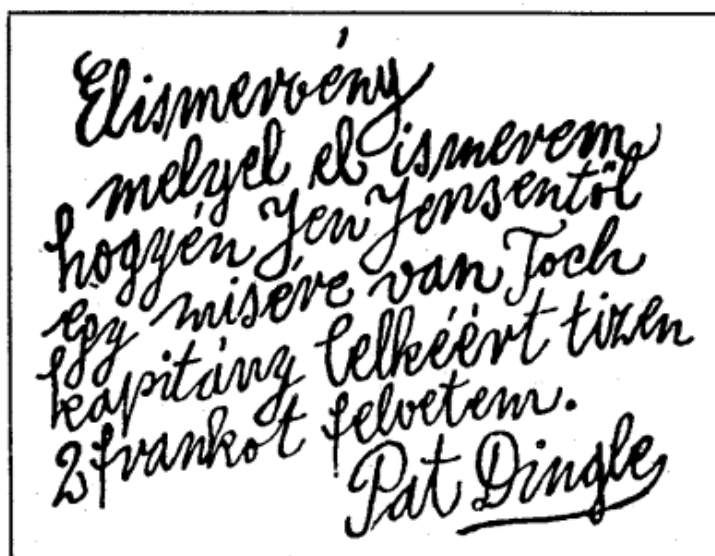 Elismervény
melyel el ismerem
hogyén Jen Jensentől
egy misére van Toch
kapitány lelkéért tizen
2 frankot felvetem.
Pat Dingle